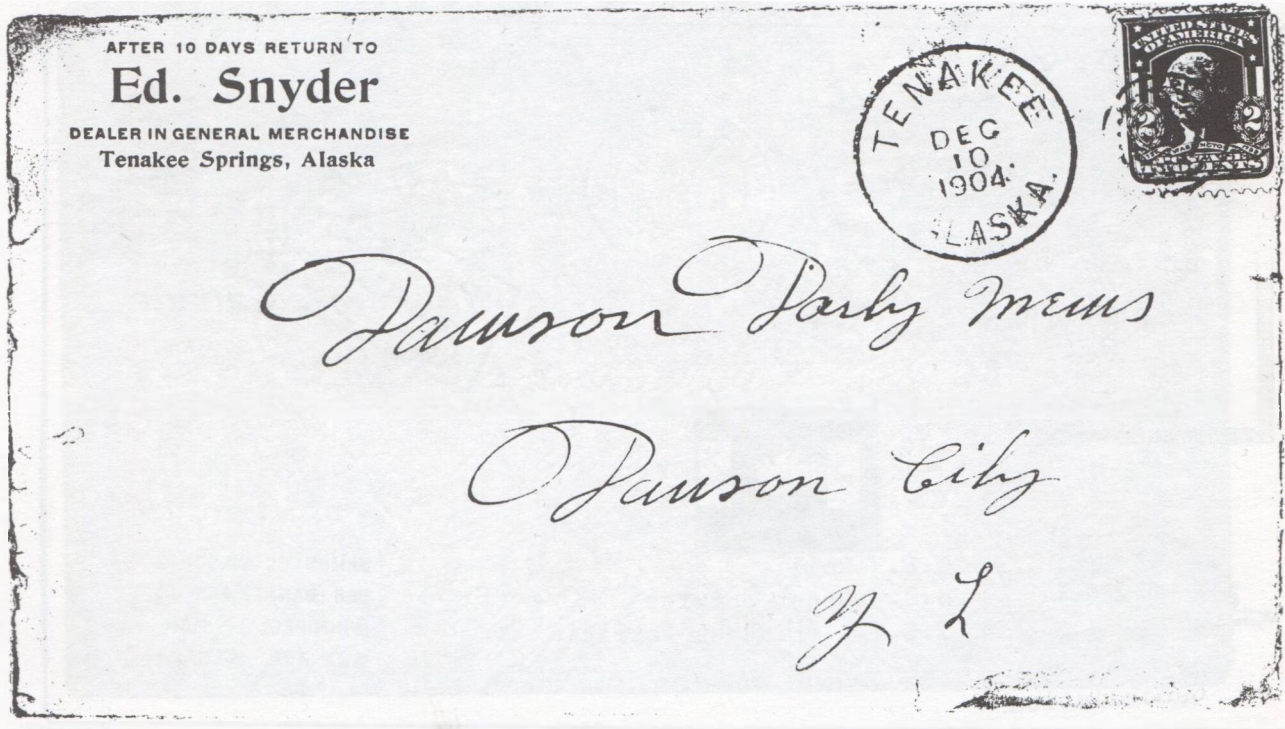 AFTER 10 DAYS RETURN TO
Ed. Snyder
DEALER IN GENERAL MERCHANDISE
Tenakee Springs, Alaska
TENAKEE
DEC
10
1904.
ALASKA.
UNITED STATES
OF AMERICA
SERIES 1902
2 2
TWO CENTS
Dawson Daily News
Dawson City
Y T